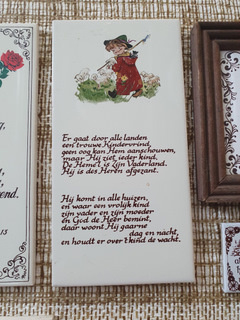 Er gaat door alle landen
een trouwe Kindervrind,
geen oog kan Hem aanschouwen,
maar Hij ziet ieder kind.
De Hemel is Zijn Vaderland,
Hij is des Heren afgezant.
Hij komt in alle huizen,
en waar een vrolijk kind
zijn vader en zijn moeder
en God de Heer bemint,
daar woont Hij gaarne
dag en nacht,
en houdt er over 't kind de wacht.
end.
15